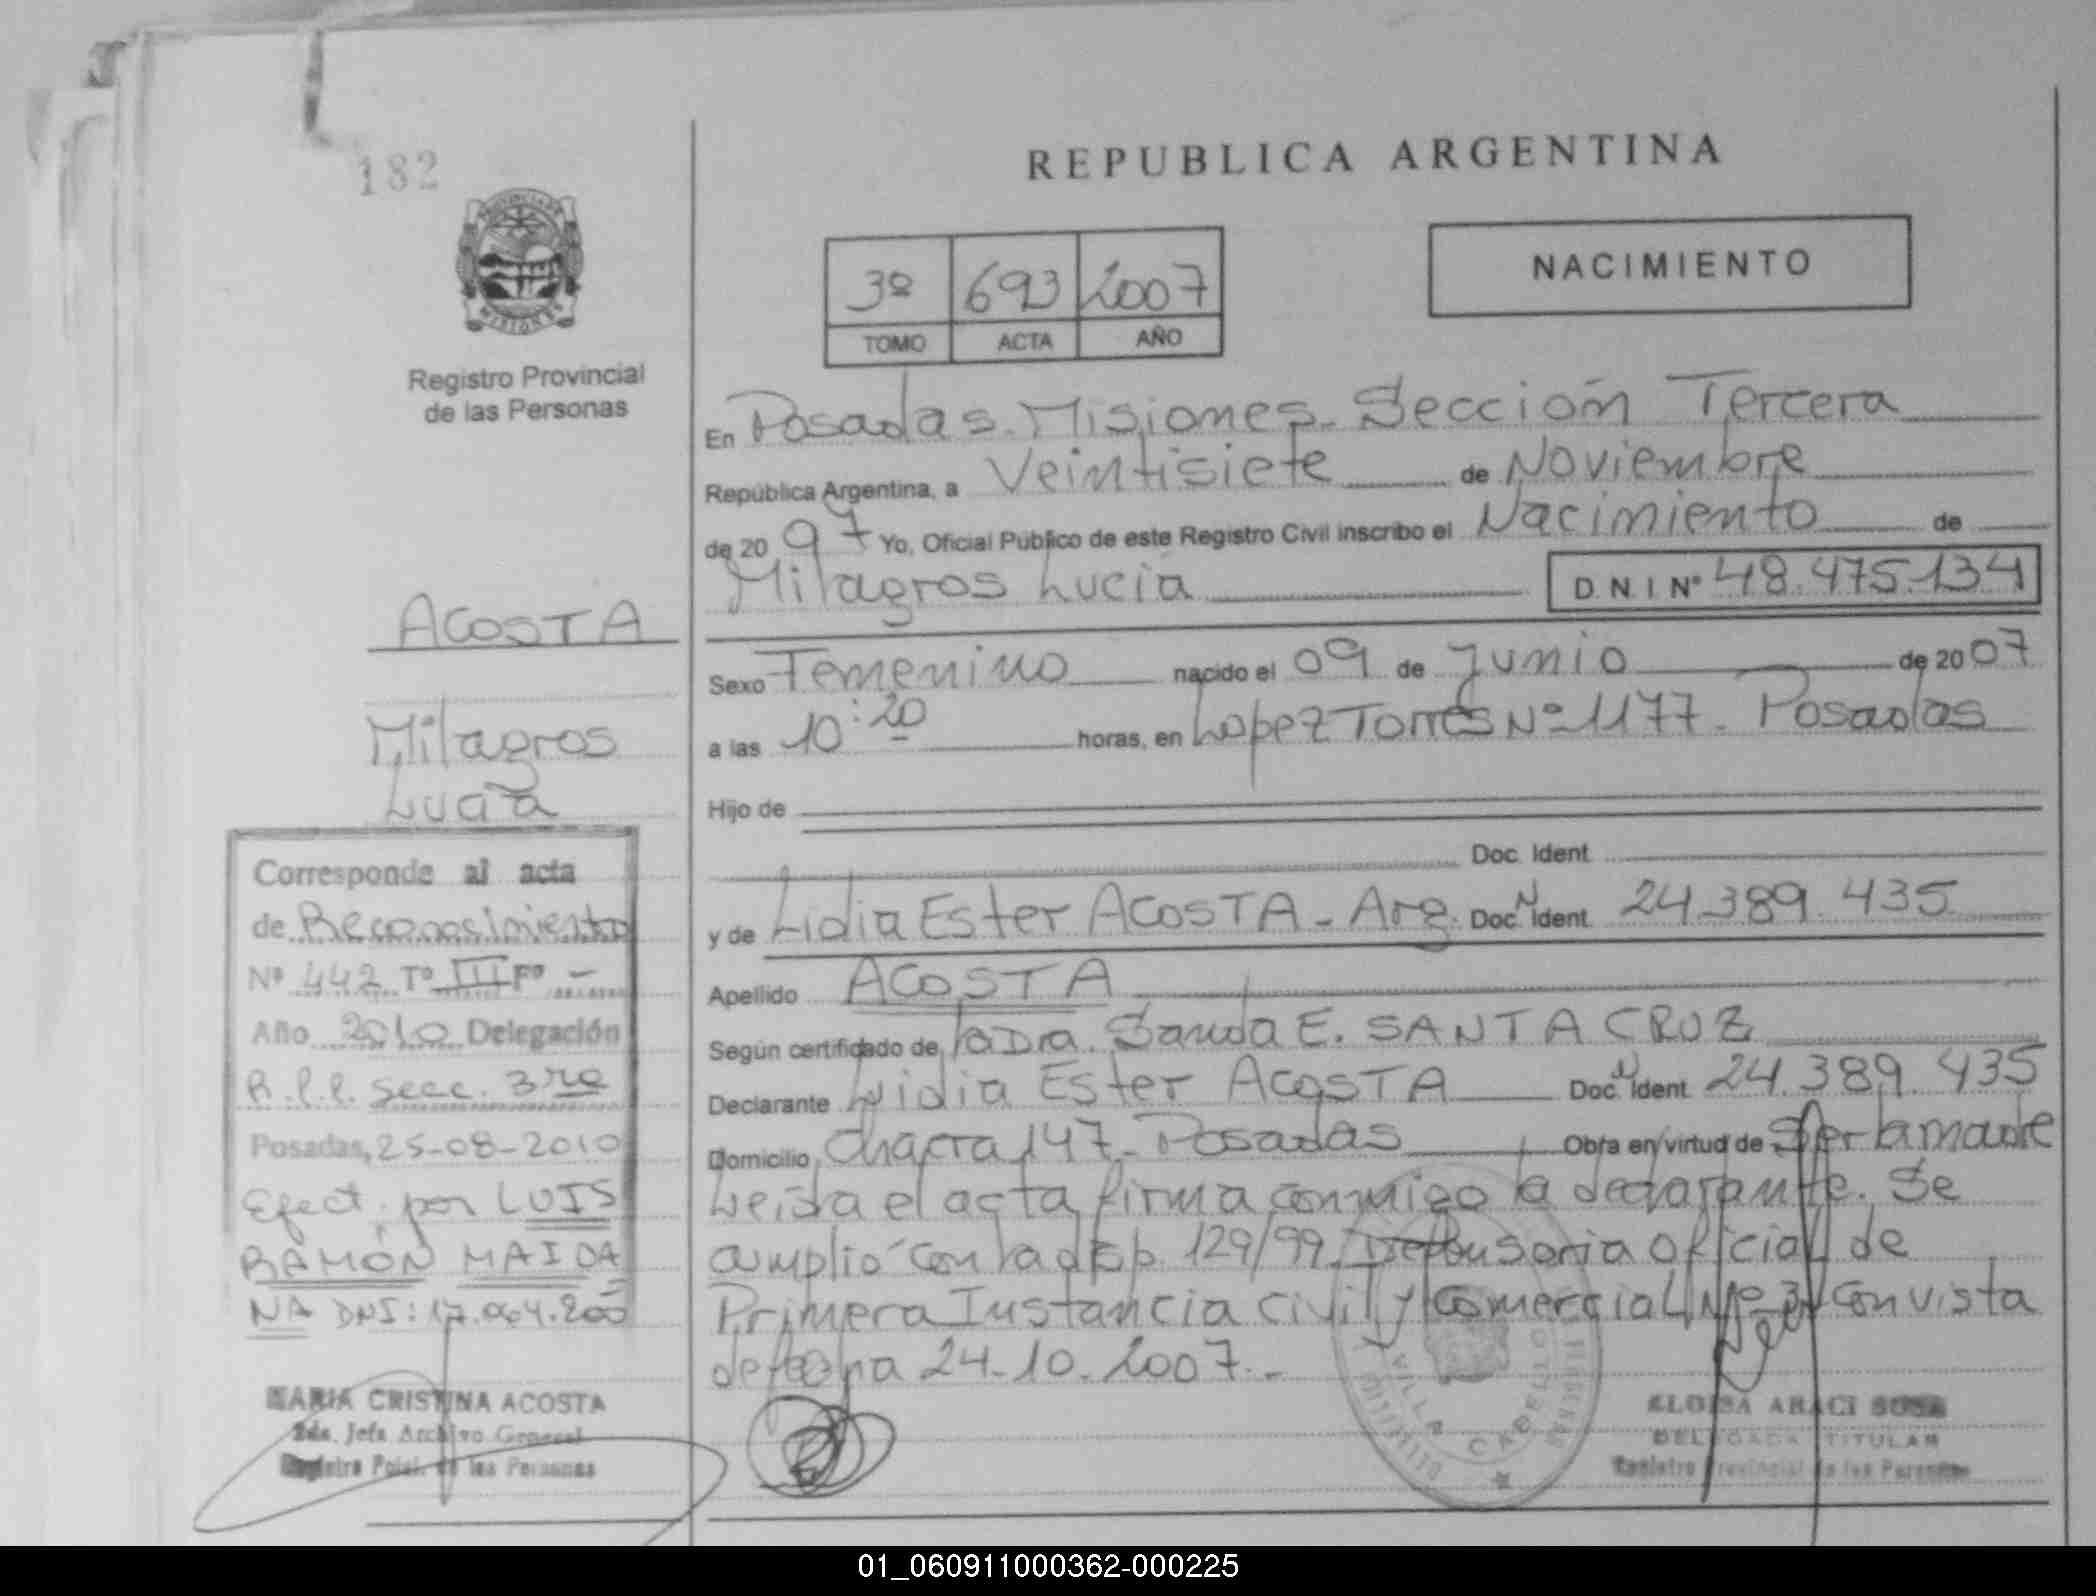 182
REPUBLICA ARGENTINA
PROVINCIA DE MISIONES
Registro Provincial
de las Personas
3º 693 2007
TOMO ACTA AÑO
NACIMIENTO
En Posadas. Misiones. Sección Tercera
República Argentina, a Veintisiete de Noviembre
de 20 07 Yo, Oficial Público de este Registro Civil inscribo el Nacimiento de
Milagros Lucia D.N.I Nº 48.475.134
Sexo Femenino nacido el 09 de Junio de 20 07
a las 10:20 horas, en Lopez Torres Nº 1177. Posadas
Hijo de
Doc. Ident.
y de Lidia Ester ACOSTA - Arg. Doc. N Ident. 24.389.435
Apellido ACOSTA
Según certificado de la Dra. E. SANTA CRUZ
Declarante Lidia Ester ACOSTA Doc. N Ident. 24.389.435
Domicilio Chacra 147. Posadas Obra en virtud de Ser la madre
Leida el acta firma conmigo la declarante. Se
amplió con la 129/99 Defensoria Oficial de
Primera Instancia Civil y Comercial Nº 3 con vista
de fecha 24-10-2007.-
ACOSTA
Milagros
Lucia
Corresponde al acta
de Reconosimiento
Nº 442 Tº III Fº -
Año 2010 Delegación
R.P.P. Secc. 3ra
Posadas, 25-08-2010
Efect. por LUIS
RAMÓN MAIDA
NA DNI: 17.064.200
MARIA CRISTINA ACOSTA
Jefa Archivo General
Registro Pcial. de las Personas
VILLA CABELLO
ELOISA ARACI SOSA
DELEGADA TITULAR
Registro Provincial de las Personas
01_060911000362-000225